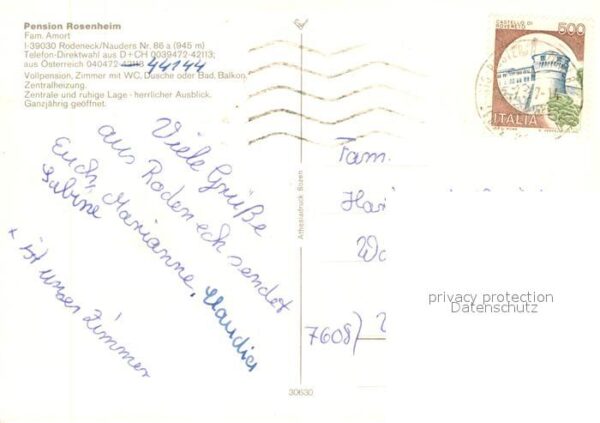 Pension Rosenheim
Fam. Amort
I-39030 Rodeneck/Nauders Nr. 86 a (945 m)
Telefon-Direktwahl aus D+CH 0039472-42113;
aus Österreich 040472-42113 44144
Vollpension, Zimmer mit WC, Dusche oder Bad, Balkon,
Zentralheizung.
Zentrale und ruhige Lage - herrlicher Ausblick.
Ganzjährig geöffnet.
Viele Grüße
aus Rodeneck sendet
Euch, Marianne, Claudia
Sabine
* ist unser Zimmer
Athesiadruck Bozen
30630
CASTELLO DI
ROVERETO
500
ITALIA
Fam.
7608)
privacy protection
Datenschutz